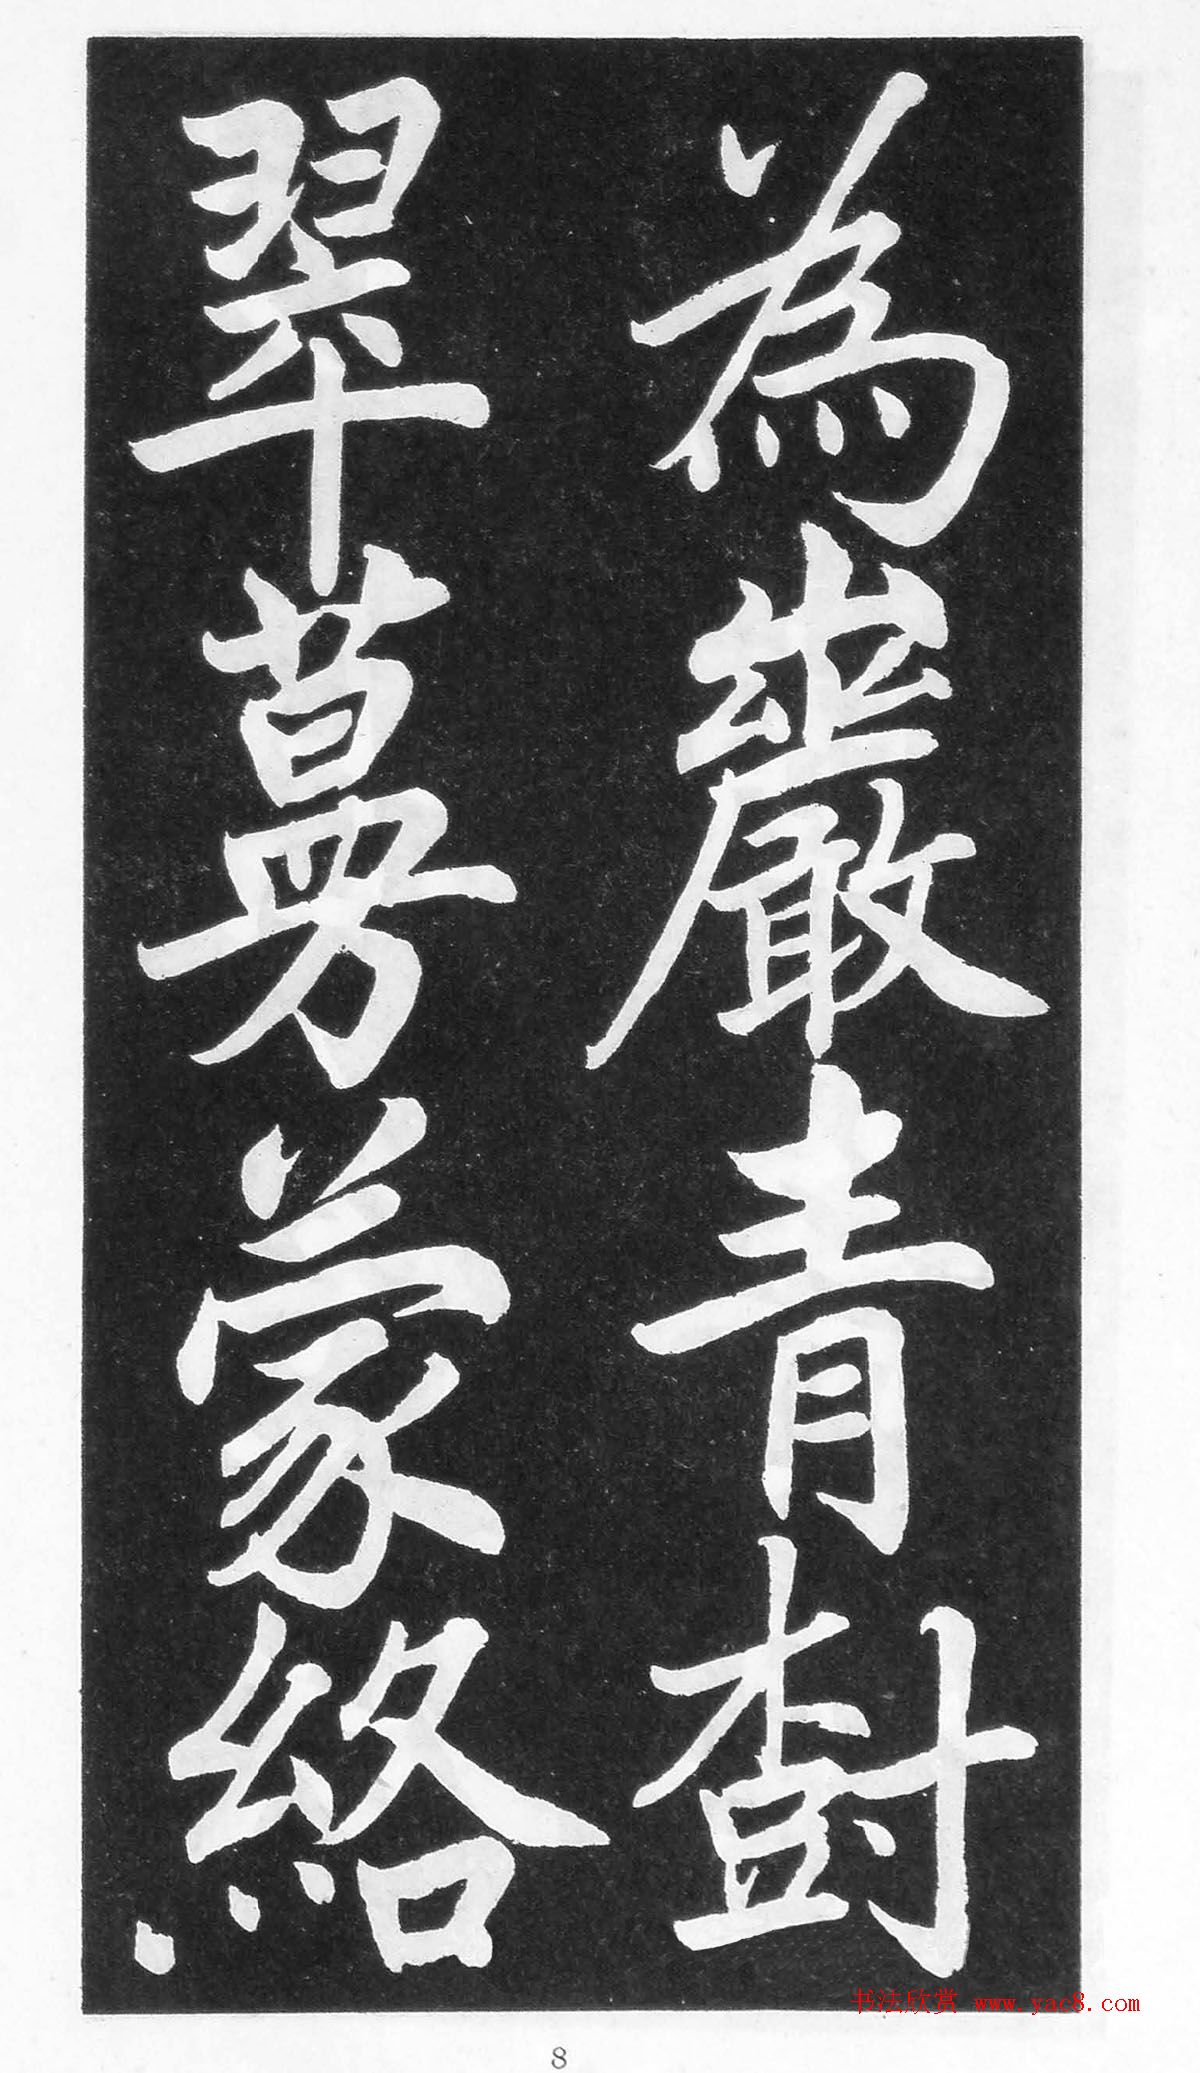 為巖青樹
翠蔓蒙絡
书法欣赏 www.yac8.com
8